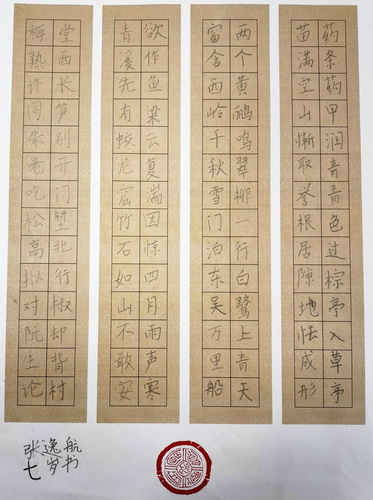 堂西长笋别开门堑北行椒却背村
梅熟许同朱老吃松高拟对阮生论
欲作鱼梁云复湍因惊四月雨声寒
青溪先有蛟龙窟竹石如山不敢安
两个黄鹂鸣翠柳一行白鹭上青天
窗含西岭千秋雪门泊东吴万里船
药条药甲润青青色过棕亭入草亭
苗满空山惭取誉根居隙地怯成形
张逸航
七岁书